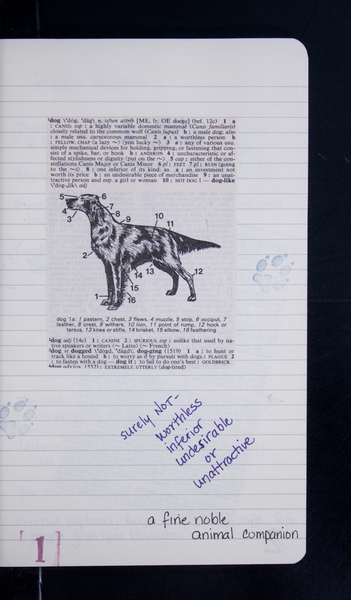 ¹dog \'dȯg, 'däg\ n, often attrib [ME, fr. OE docga] (bef. 12c) 1 a
: CANID; esp : a highly variable domestic mammal (Canis familiaris)
closely related to the common wolf (Canis lupus) b : a male dog; also
: a male usu. carnivorous mammal 2 a : a worthless person b
: FELLOW, CHAP (a lazy ~) (you lucky ~) 3 a : any of various usu.
simple mechanical devices for holding, gripping, or fastening that con-
sist of a spike, bar, or hook b : ANDIRON 4 : uncharacteristic or af-
fected stylishness or dignity (put on the ~) 5 cap : either of the con-
stellations Canis Major or Canis Minor 6 pl : FEET 7 pl : RUIN (going
to the ~s) 8 : one inferior of its kind: as a : an investment not
worth its price b : an undesirable piece of merchandise 9 : an unat-
tractive person and esp. a girl or woman 10 : HOT DOG 1 — dog-like
\'dȯg-ˌlīk\ adj
5
6
4
3
7
8
9
10
11
2
12
13
14
15
1
16
dog 1a: 1 pastern, 2 chest, 3 flews, 4 muzzle, 5 stop, 6 occiput, 7
leather, 8 crest, 9 withers, 10 loin, 11 point of rump, 12 hock or
tarsus, 13 knee or stifle, 14 brisket, 15 elbow, 16 feathering
²dog adj (14c) 1 : CANINE 2 : SPURIOUS; esp : unlike that used by na-
tive speakers or writers (~ Latin) (~ French)
³dog vt dogged \'dȯgd, 'dägd\; dog-ging (1519) 1 a : to hunt or
track like a hound b : to worry as if by pursuit with dogs : PLAGUE 2
: to fasten with a dog — dog it : to fail to do one's best : GOLDBRICK
1552) : EXTREMELY, UTTERLY (dog-tired)
surely NOT-
worthless
inferior
undesirable
or
unattractive
a fine noble
animal companion
[1]